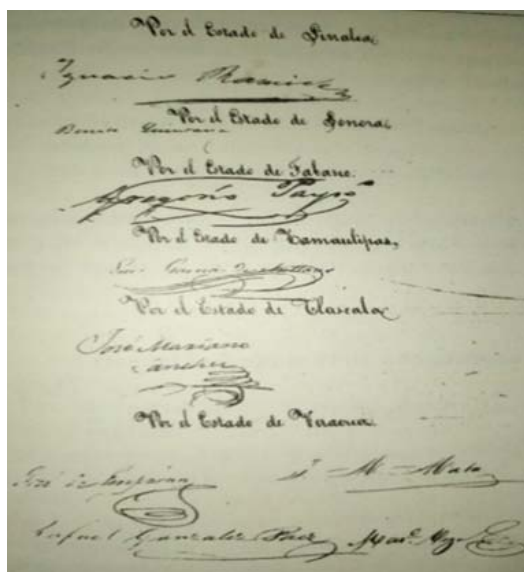 Por el Estado de Sinaloa
Ignacio Ramirez
Por el Estado de Sonora
Benito Quintana
Por el Estado de Tabasco.
Gregorio Payró
Por el Estado de Tamaulipas,
Luis García de Arellano
Por el Estado de Tlascala
José Mariano
Sanchez
Por el Estado de Veracruz.
José de Emparan J. M. Mata
Rafael Gonzalez Paez Mar.